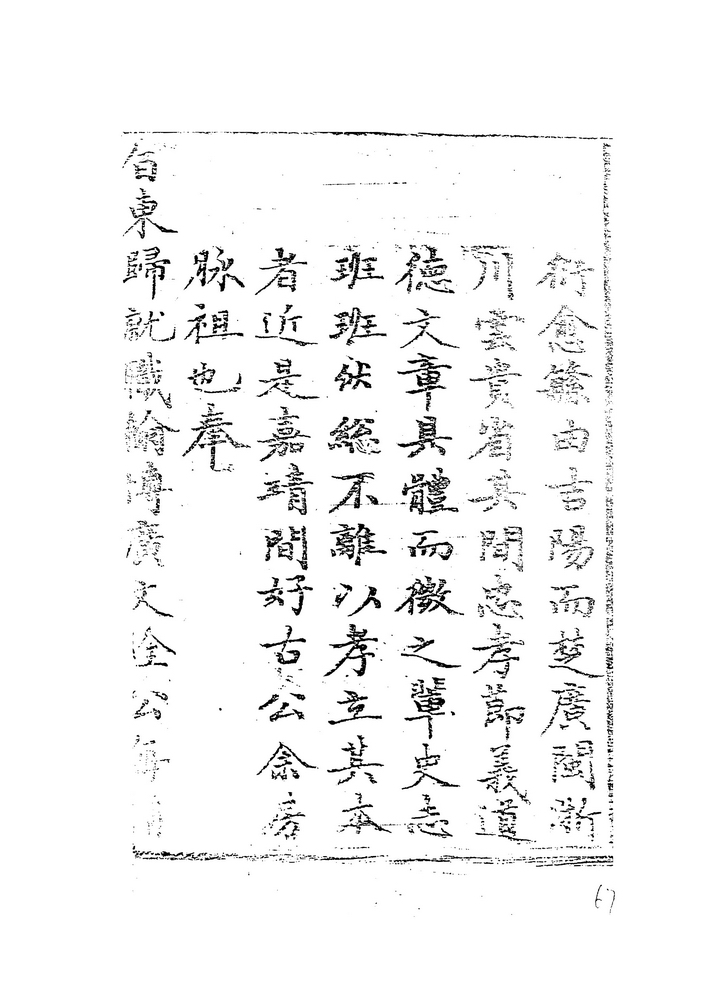 衍愈繇由吉陽而楚廣閩浙
川雲貴省其間忠孝節義道
德文章具體而微之輩史志
班班然總不離以孝立其本
者近是嘉靖間好古公余房
脉祖也奉
自東歸就職翰博廣文全公每
67